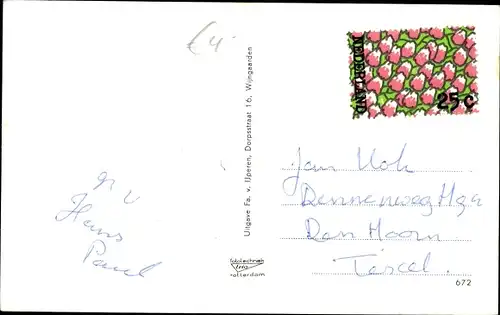 €4
NEDERLAND
25 c
Uitgave Fa. v. IJperen, Dorpsstraat 16, Wijngaarden
Jan Kok
Dennenweg H92
Den Hoorn
Texel.
Hans
Paul
fototechniek
rotterdam
672